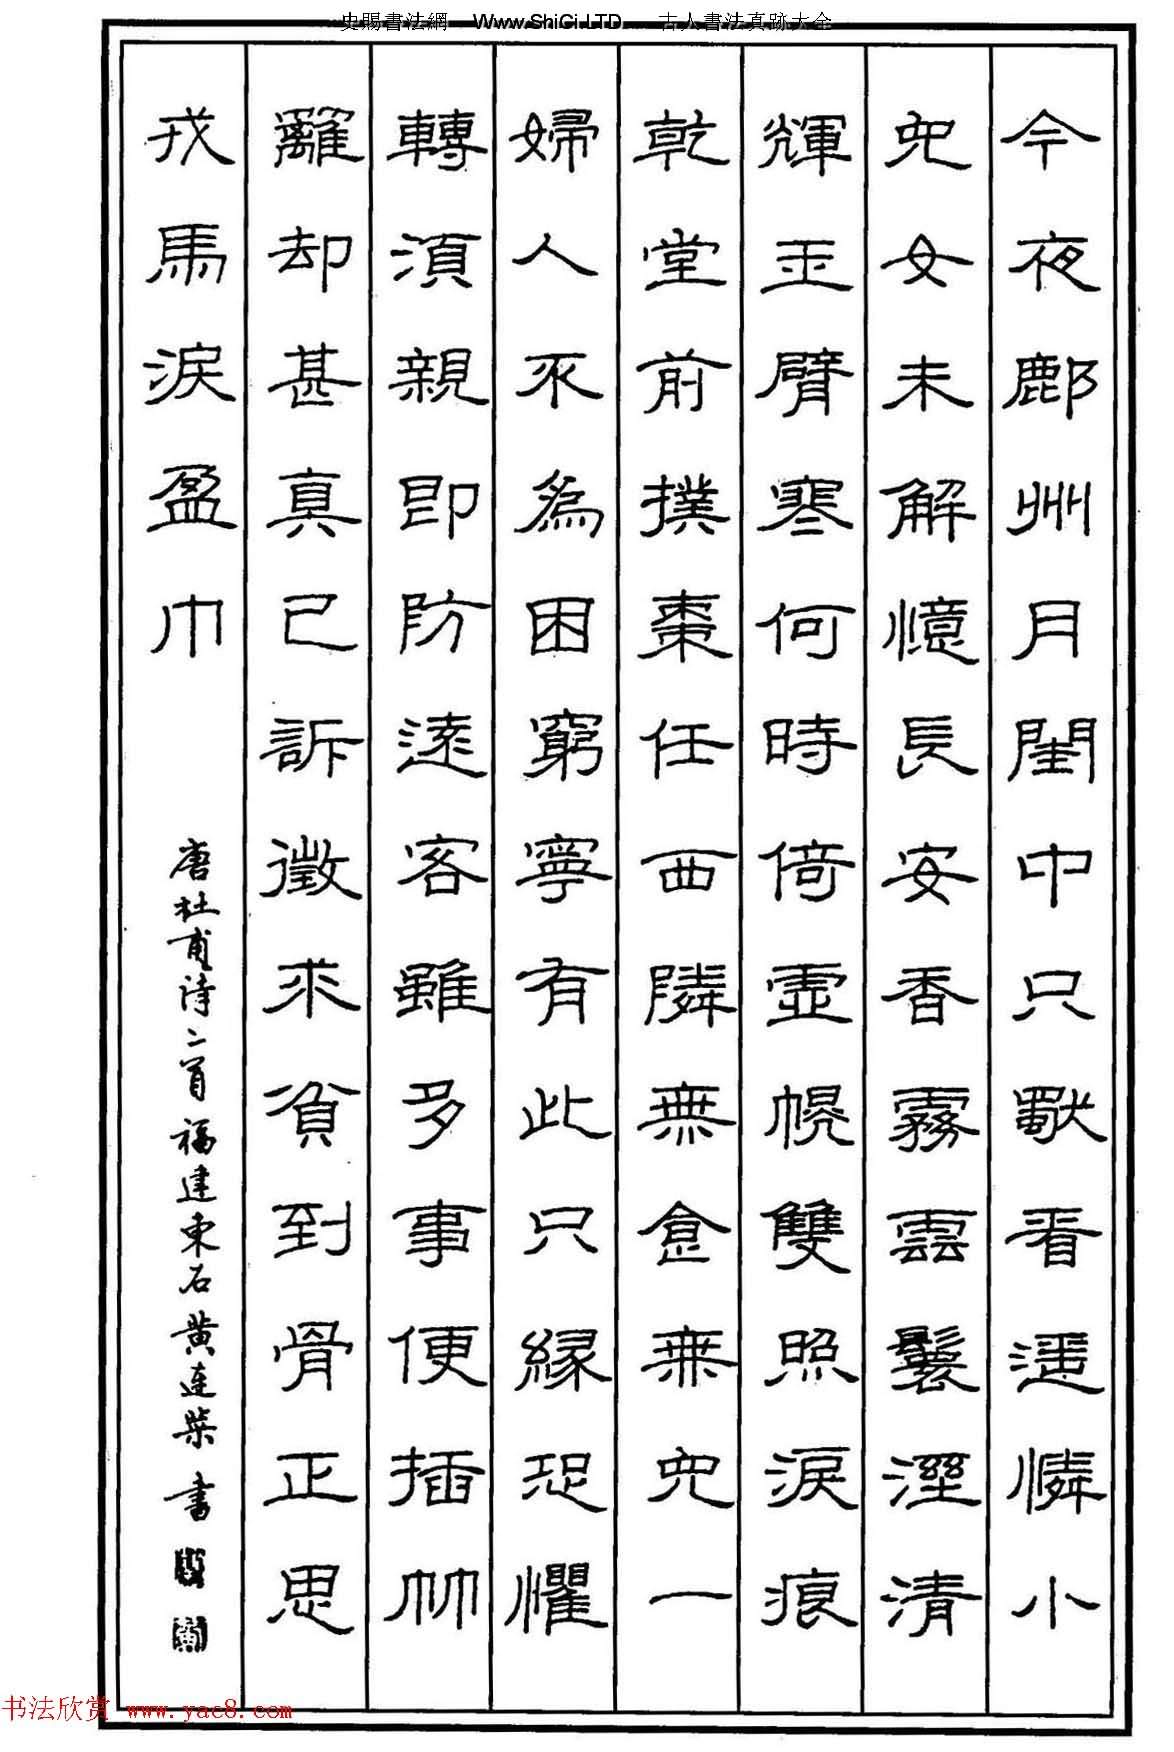 史賜書法網 Www.ShiCi.LTD 古人書法真跡大全
今夜鄜州月閨中只獨看遥憐小
兒女未解憶長安香霧雲鬟溼清
輝玉臂寒何時倚虛幌雙照淚痕
乾堂前撲棗任西隣無食無兒一
婦人不為困窮寧有此只緣恐懼
轉須親即防遠客雖多事便插
籬却甚真已訴徵求貧到骨正思
戎馬淚盈巾
唐杜甫诗二首福建東石黄连荣書
书法欣赏 www.yac8.com